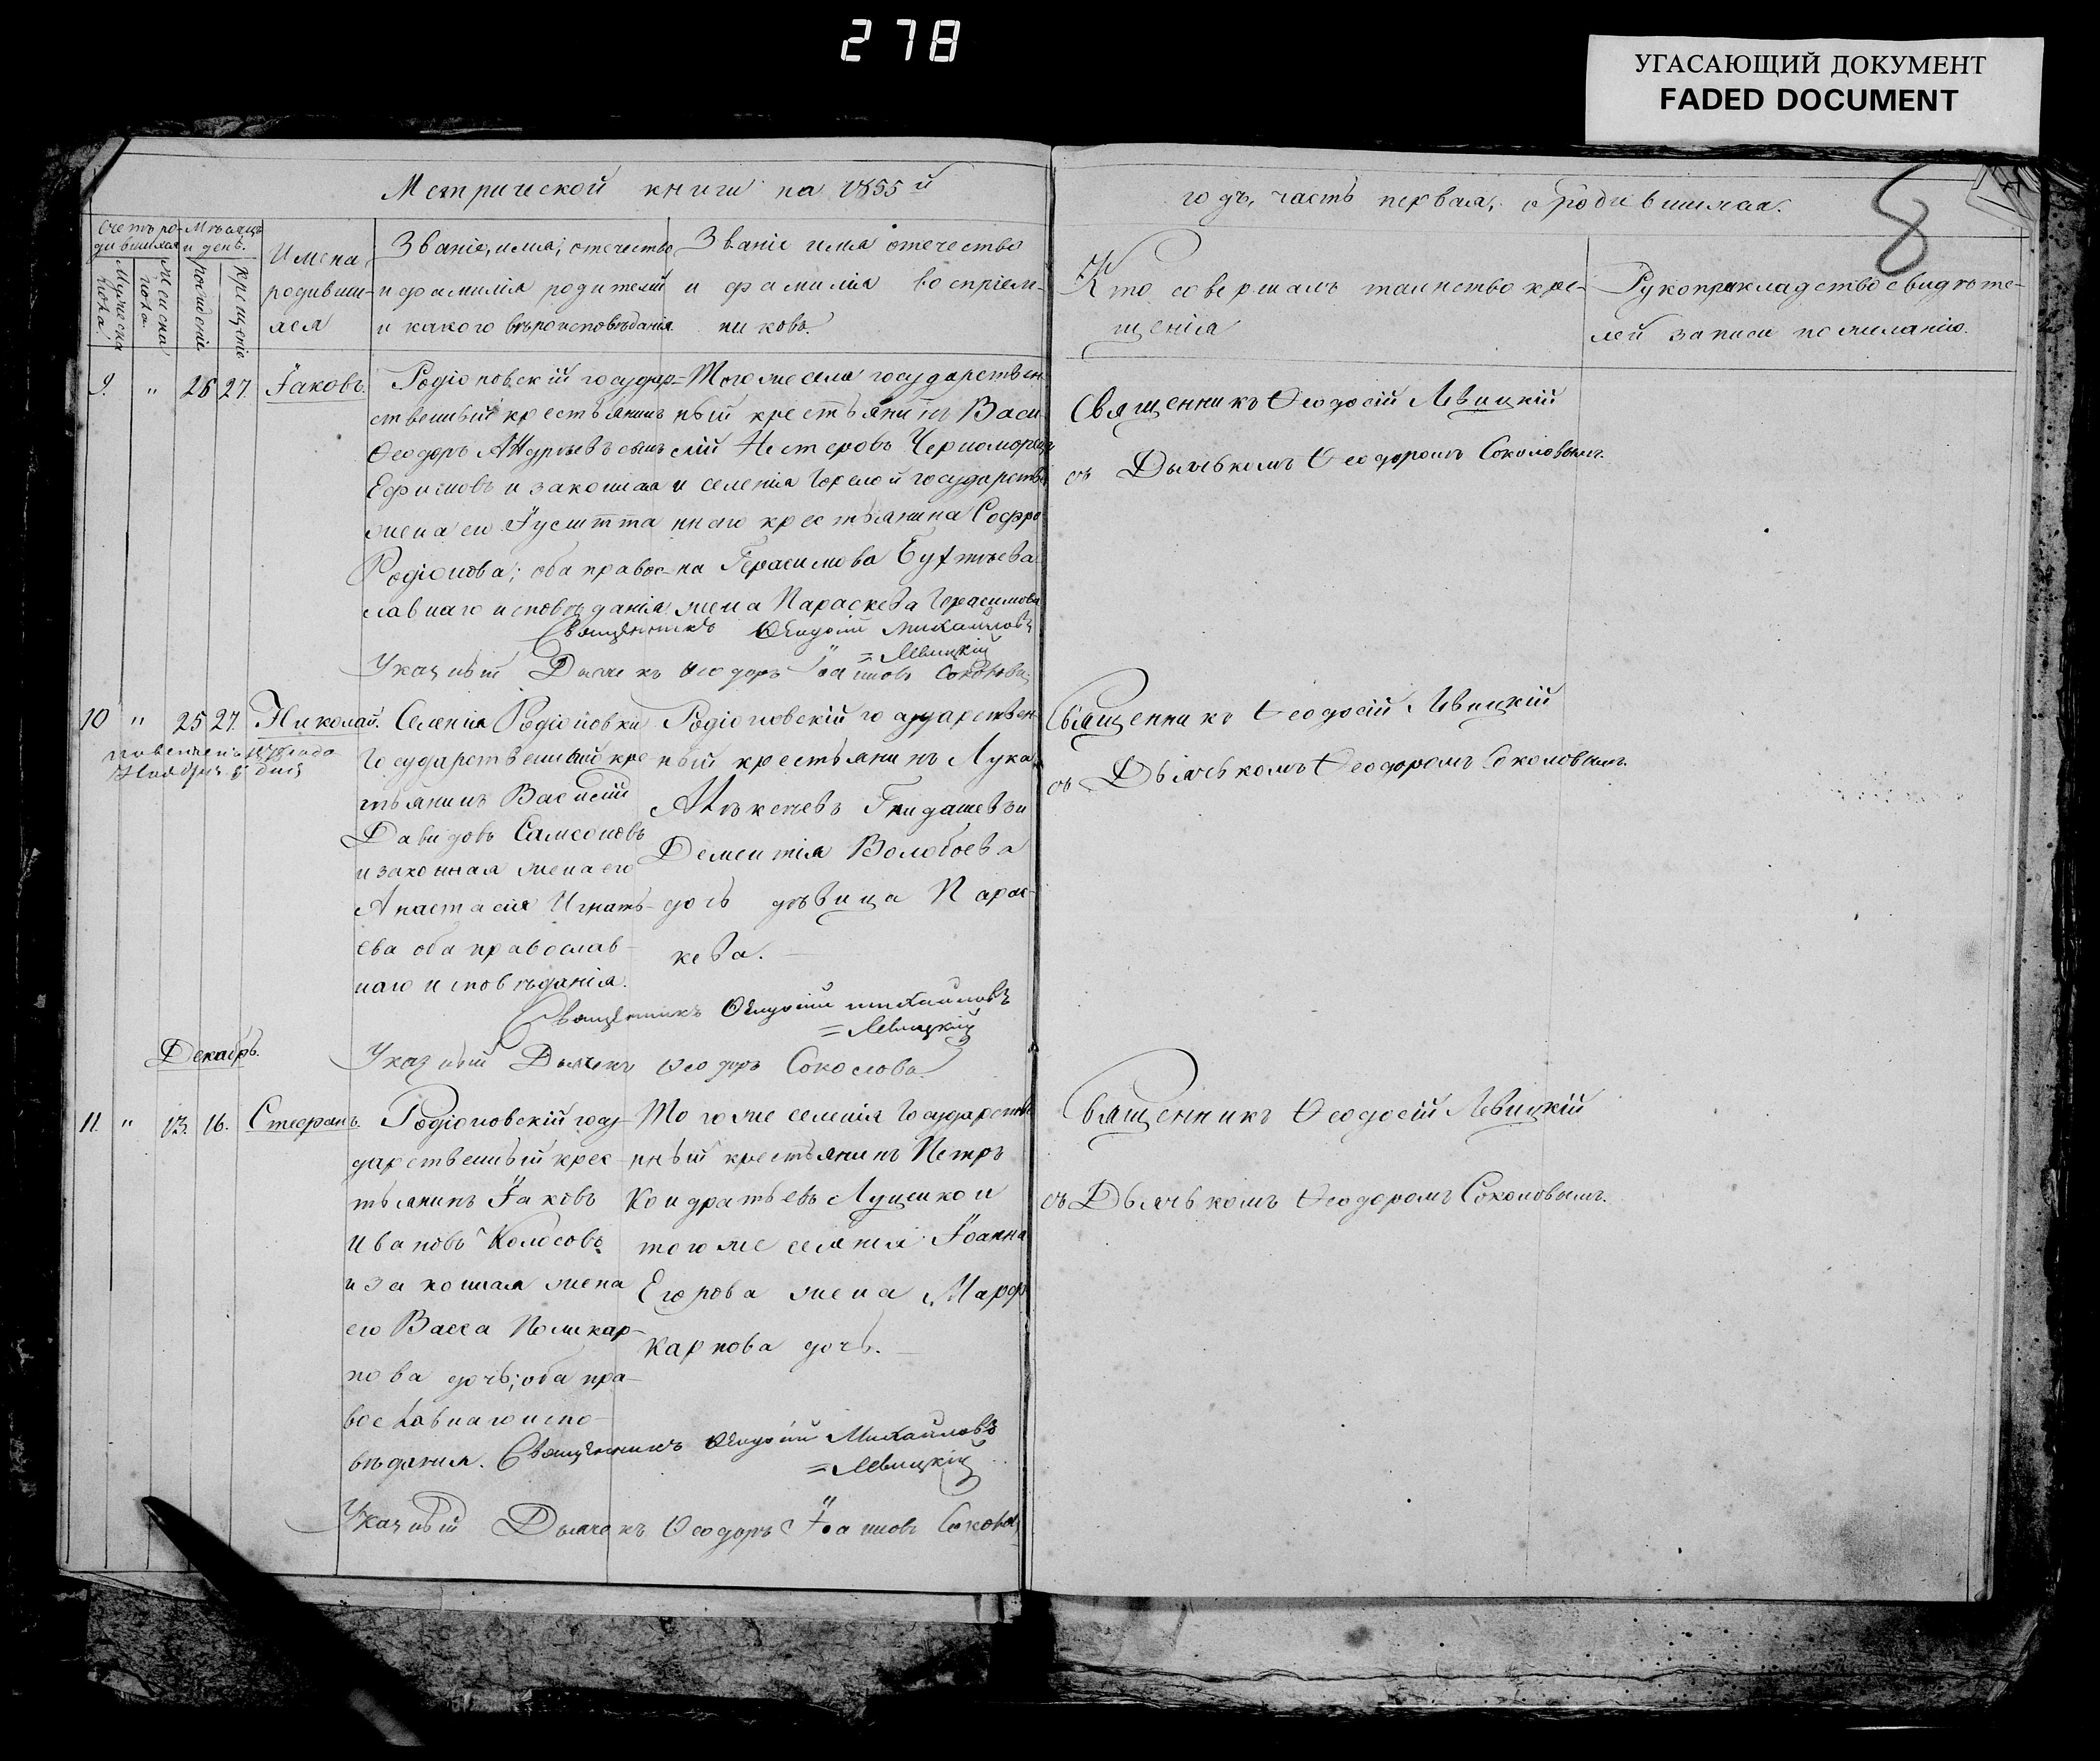 278
УГАСАЮЩИЙ ДОКУМЕНТ
FADED DOCUMENT
8
Метрической книги на 1855й
годъ, часть первая, о родившихся.
Счетъ ро-
дившихся
Мѣсяцъ
и день.
Мужеска
пола.
Женска
пола.
рожденіе
крещеніе
Имена
родивши-
хся
Званіе, имя, отечество
и фамилія родителей
и какого вѣроисповѣданія
Званіе имя отечество
и фамилія воспріем-
никовъ.
Кто совершалъ таинство кре-
щенія
Рукоприкладство свидѣте-
лей записи по желанію.
9. " 26 27 Іаковъ.
Родіоновскій государ-
ственный крестьянинъ
Ѳеодоръ сынъ
Ефимовъ и законная
жена его Іустина
Родіонова; оба правос-
лавнаго исповѣданія
Тогоже села государствен
ный крестьянинъ Васи
лій Нестеровъ Черноморецъ
и селенія Горелой государстве
ннаго крестьянина Софро
на Герасимова
жена Параскева Герасимова
Священникъ Ѳеодосій Михайловъ
=Левицкій
Указный Дьячекъ Ѳеодоръ Іоанновъ Соколовъ
Священникъ Ѳеодосій Левицкій
съ Дьячькомъ Ѳеодоромъ Соколовымъ.
10 " 25 27. Николай.
Ноября дня
Селенія Родіоновки
Государственный кре
тьянинъ Василій
Давидовъ Самсоновъ
и законная жена его
Анастасія Игнать-
ева оба православ-
наго исповѣданія.
Родіоновскій государствен
ный крестьянинъ Лука
Дементія Волобоева
дочь дѣвица Парас-
кева.
Священникъ Ѳеодосій Михайловъ
=Левицкій
Указный Дьячекъ Ѳеодоръ Соколовъ
Священникъ Ѳеодосій Левицкій
съ Дьячькомъ Ѳеодоромъ Соколовымъ.
Декабрь.
11. " 13. 16. Стефанъ.
Родіоновскій госу-
дарственный крес-
тьянинъ Іаковъ
Ивановъ Колосовъ
и законная жена
его Васса Поликар-
пова дочь; оба пра-
вославнаго испо-
вѣданія.
Тогоже селенія Государстве
нный крестьянинъ Петръ
Кондратьевъ Луценко и
тогоже селенія Іоанна
Егорова жена Марф
Карпова дочь.
Священникъ Ѳеодосій Михайловъ
=Левицкій
Указный Дьячекъ Ѳеодоръ Іоанновъ Соколов
Священникъ Ѳеодосій Левицкій
съ Дьячькомъ Ѳеодоромъ Соколовымъ.